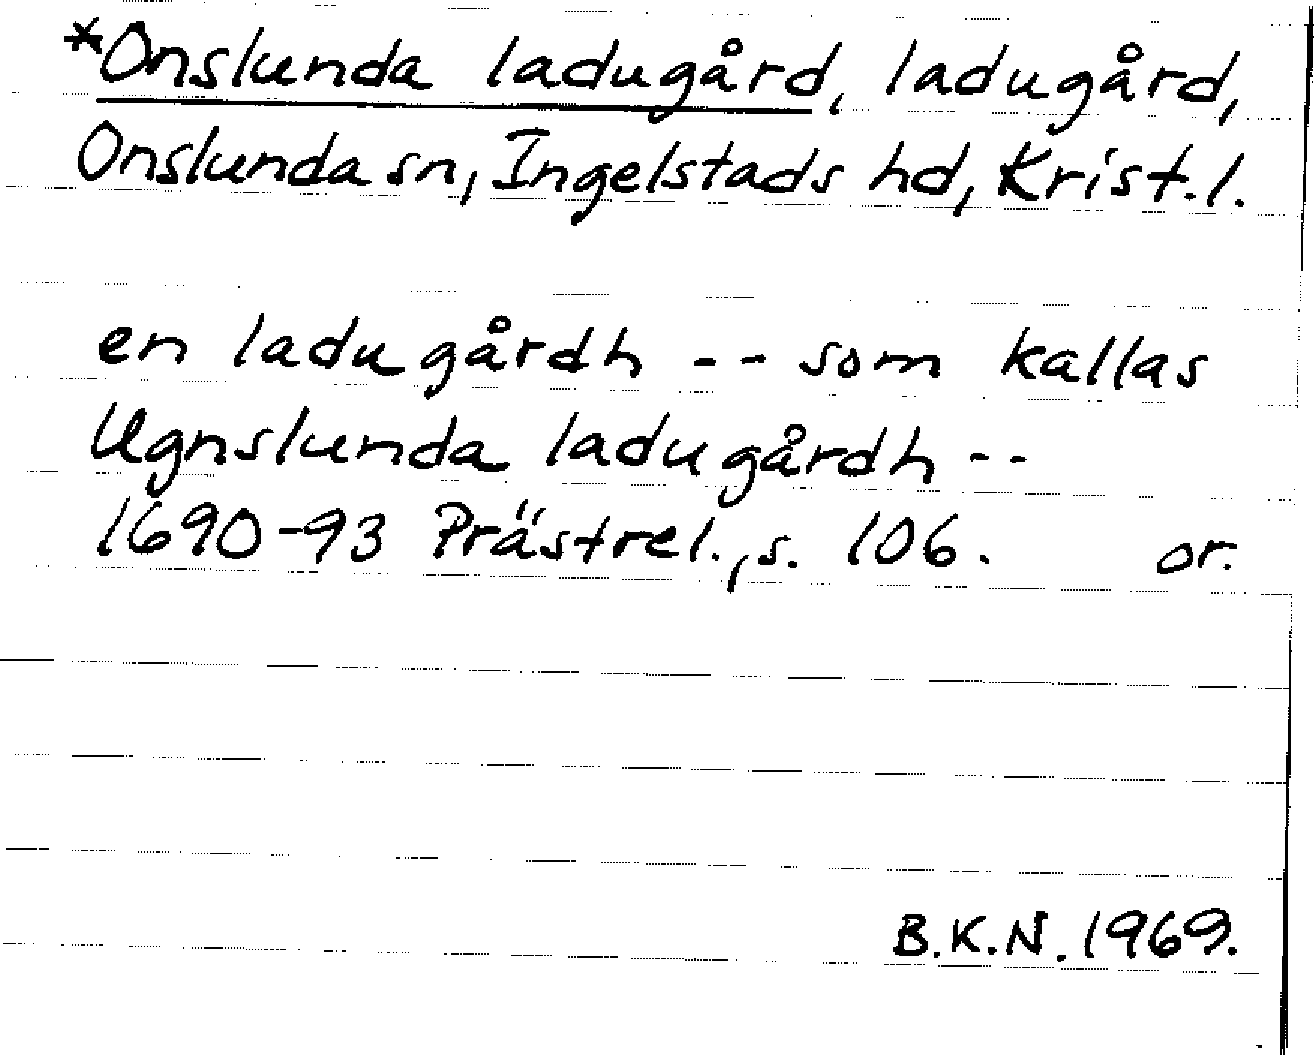 *Onslunda ladugård, ladugård,
Onslunda sn, Ingelstads hd, Krist.l.
en ladugårdh -- som kallas
Ugnslunda ladugårdh --
1690-93 Prästrel., s. 106. or.
B.K.N. 1969.